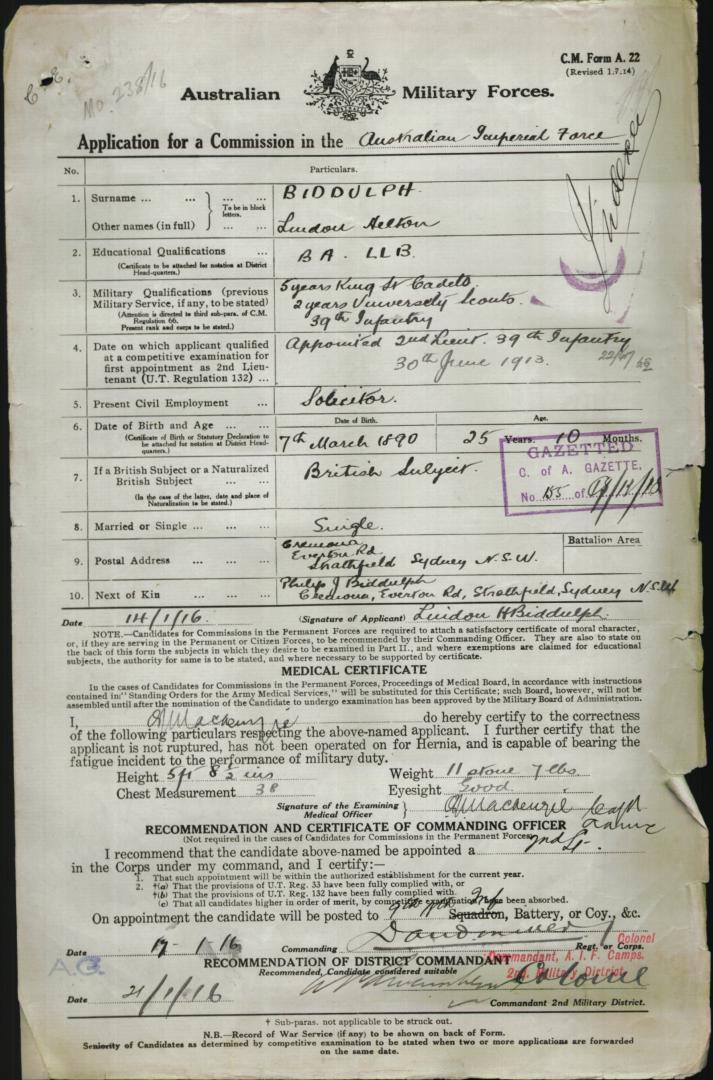 C.M. Form A. 22
(Revised 1.7.14)
Mo. 238/16
Australian Military Forces.
Application for a Commission in the Australian Imperial Force
No. Particulars.
1. Surname ... ... ... ... BIDDULPH.
To be in block letters.
Other names (in full) ... ...
2. Educational Qualifications ... BA. LLB.
(Certificate to be attached for notation at District Head-quarters.)
3. Military Qualifications (previous Military Service, if any, to be stated)
(Attention is directed to third sub-para. of C.M. Regulation 66. Present rank and corps to be stated.)
5 years King St Cadets.
2 years University Scouts.
39th Infantry
4. Date on which applicant qualified at a competitive examination for first appointment as 2nd Lieutenant (U.T. Regulation 132) ...
Appointed 2nd Lieut. 39th Infantry
30th June 1913.
5. Present Civil Employment ... Solicitor.
6. Date of Birth and Age ... ...
(Certificate of Birth or Statutory Declaration to be attached for notation at District Head-quarters.)
Date of Birth. Age.
7th March 1890 25 Years. 10 Months.
GAZETTED
C. of A. GAZETTE,
No. 155 of
7. If a British Subject or a Naturalized British Subject ... ...
(In the case of the latter, date and place of Naturalization to be stated.)
British Subject.
8. Married or Single ... ... ... Single.
9. Postal Address ... ... ...
Everton Rd
Strathfield Sydney N.S.W.
Battalion Area
10. Next of Kin ... ... ... Philip J Biddulph
Everton Rd, Strathfield, Sydney N.S.W
Date 14/1/16. (Signature of Applicant) Lindon H Biddulph.
NOTE.—Candidates for Commissions in the Permanent Forces are required to attach a satisfactory certificate of moral character,
or, if they are serving in the Permanent or Citizen Forces, to be recommended by their Commanding Officer. They are also to state on
the back of this form the subjects in which they desire to be examined in Part II., and where exemptions are claimed for educational
subjects, the authority for same is to be stated, and where necessary to be supported by certificate.
MEDICAL CERTIFICATE
In the cases of Candidates for Commissions in the Permanent Forces, Proceedings of Medical Board, in accordance with instructions
contained in "Standing Orders for the Army Medical Services," will be substituted for this Certificate; such Board, however, will not be
assembled until after the nomination of the Candidate to undergo examination has been approved by the Military Board of Administration.
I, Mackenzie do hereby certify to the correctness
of the following particulars respecting the above-named applicant. I further certify that the
applicant is not ruptured, has not been operated on for Hernia, and is capable of bearing the
fatigue incident to the performance of military duty.
Height 5ft 8½ ins Weight 11 stone 7 lbs.
Chest Measurement 38 Eyesight Good
Signature of the Examining Medical Officer } Mackenzie Capt
RECOMMENDATION AND CERTIFICATE OF COMMANDING OFFICER
(Not required in the cases of Candidates for Commissions in Permanent Forces)
I recommend that the candidate above-named be appointed a 2nd Lt.
in the Corps under my command, and I certify:—
1. That such appointment will be within the authorized establishment for the current year.
2. †(a) That the provisions of U.T. Reg. 33 have been fully complied with, or
†(b) That the provisions of U.T. Reg. 132 have been fully complied with.
(c) That all candidates higher in order of merit, by competitive examination, have been absorbed.
On appointment the candidate will be posted to Squadron, Battery, or Coy., &c.
Date 17-1-16 Commanding Regt. or Corps.
Colonel
Commandant, A.I.F. Camps.
2nd. Military District.
RECOMMENDATION OF DISTRICT COMMANDANT
Recommended, Candidate considered suitable
Colonel
Date 21/1/16 Commandant 2nd Military District.
† Sub-paras. not applicable to be struck out.
N.B.—Record of War Service (if any) to be shown on back of Form.
Seniority of Candidates as determined by competitive examination to be stated when two or more applications are forwarded
on the same date.